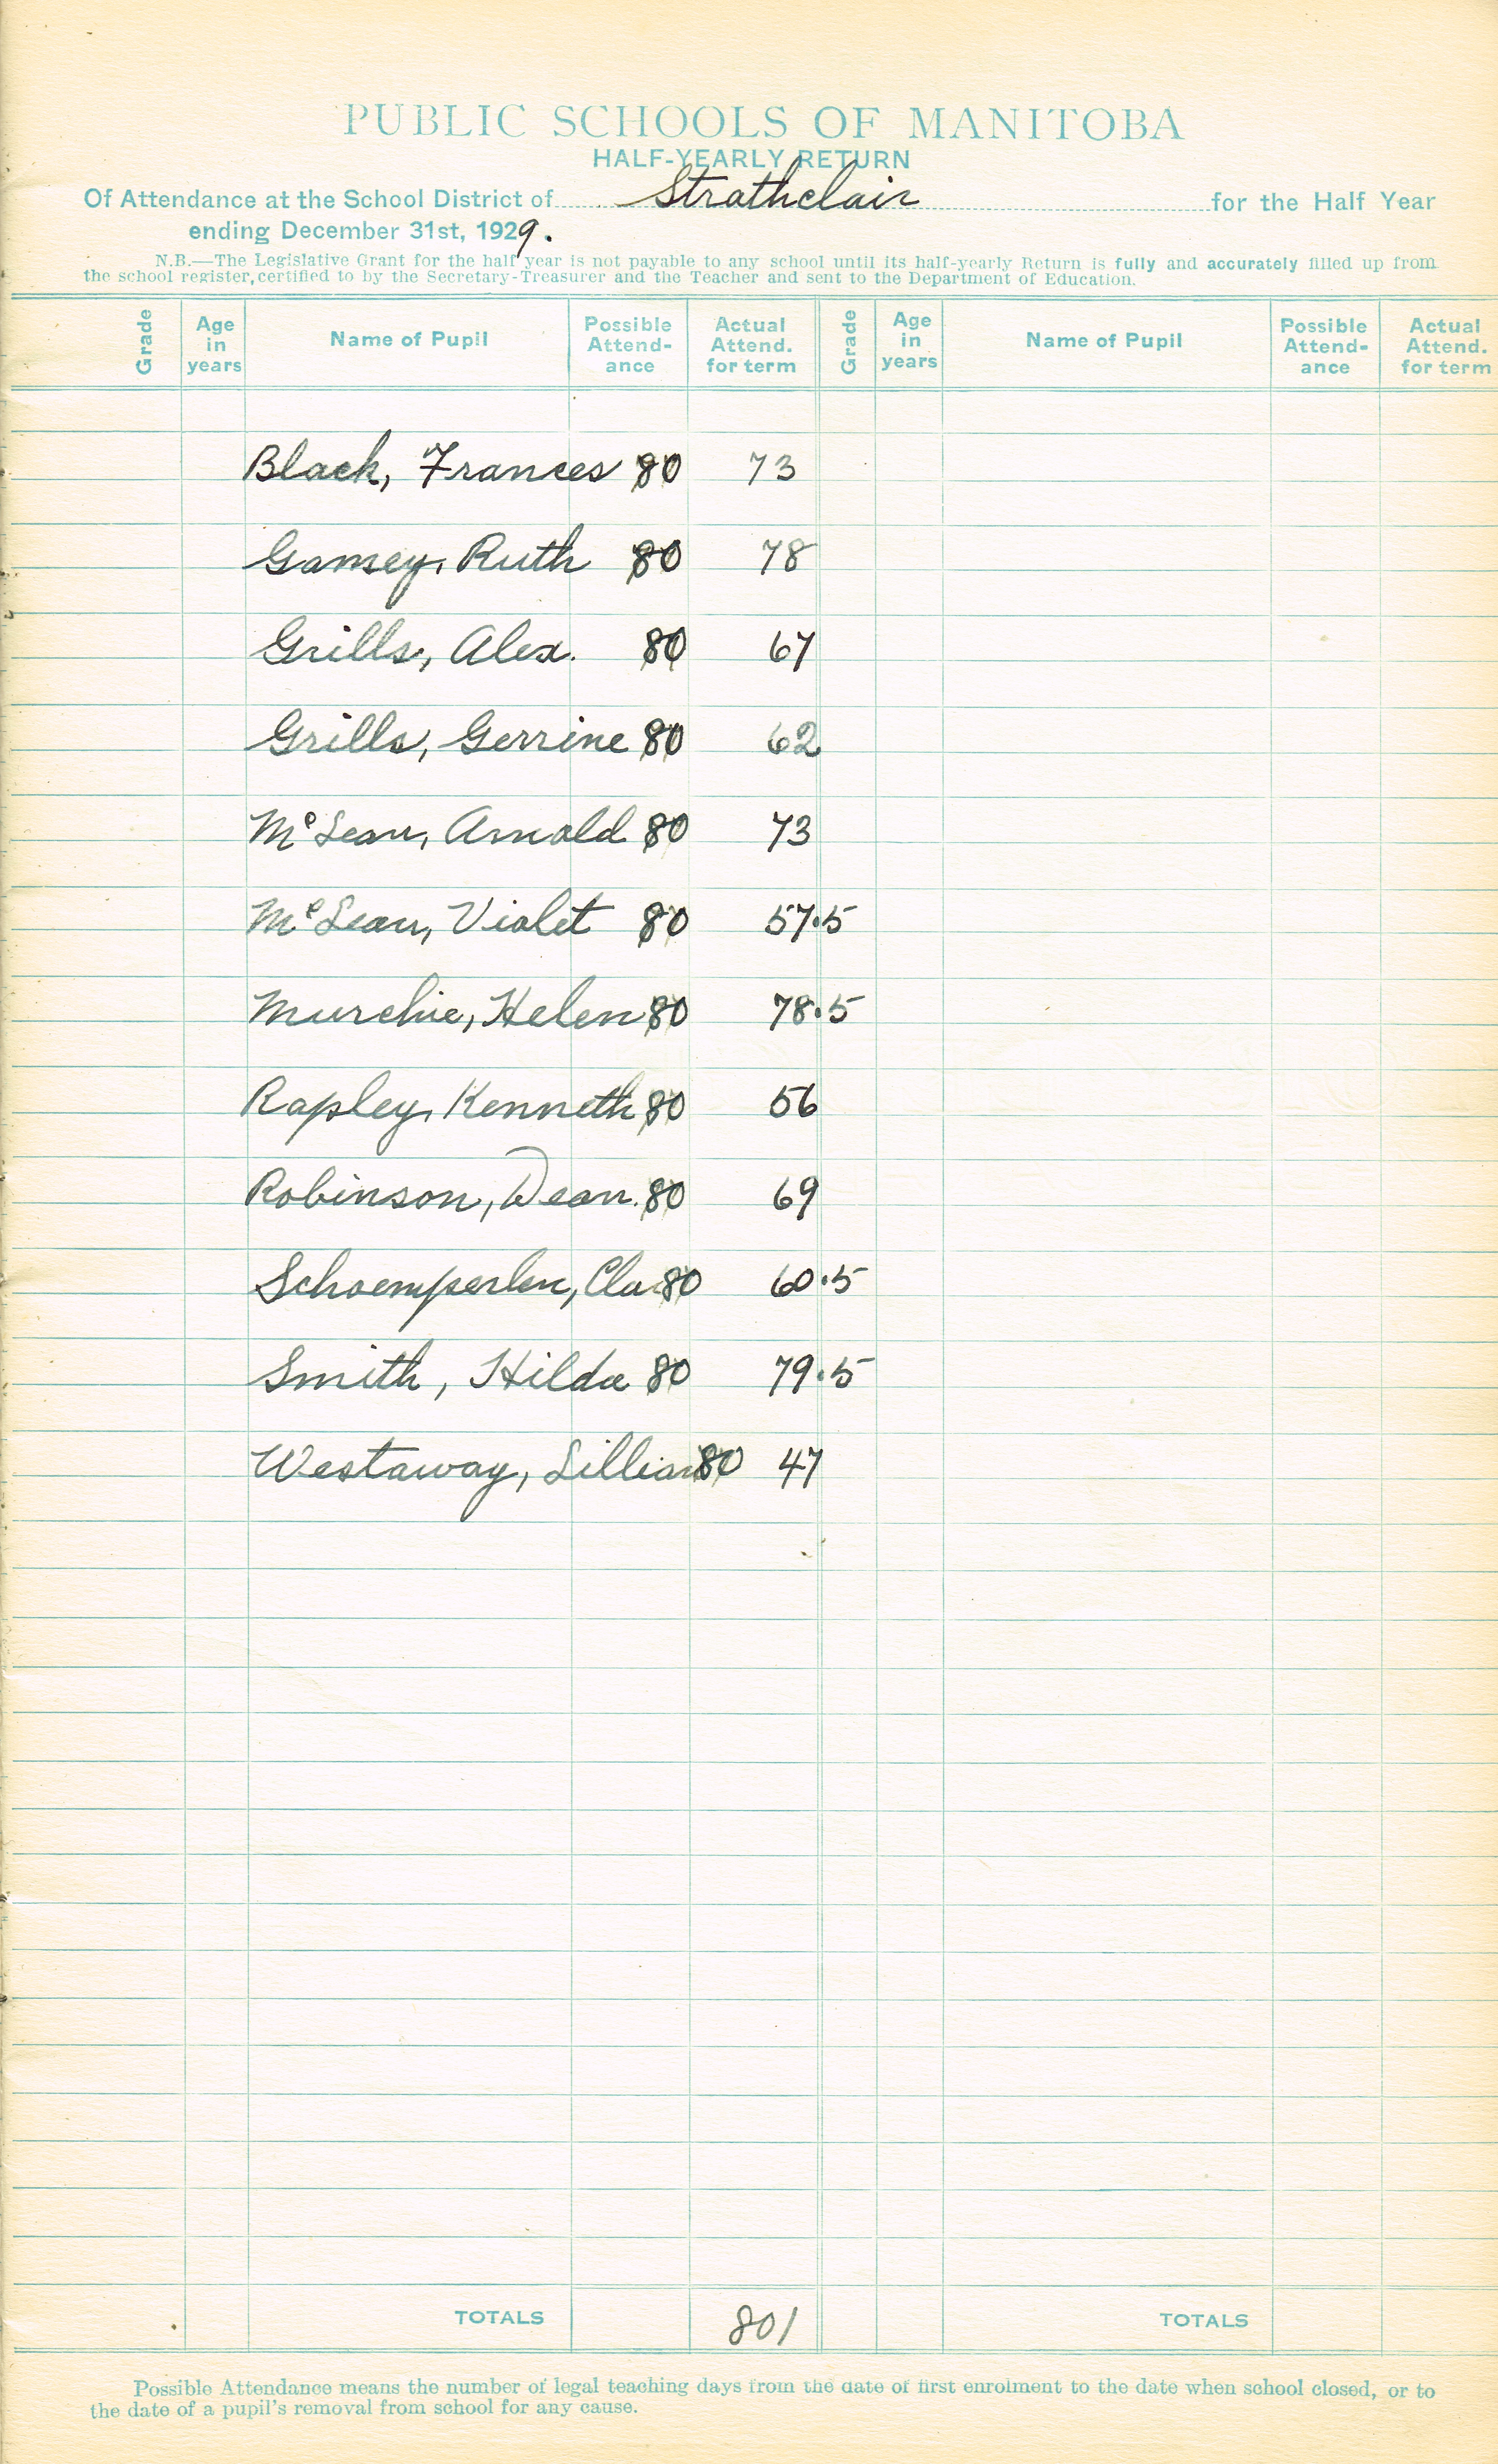 PUBLIC SCHOOLS OF MANITOBA
HALF-YEARLY RETURN
Of Attendance at the School District of Strathclair for the Half Year
ending December 31st, 1929.
N.B.—The Legislative Grant for the half year is not payable to any school until its half-yearly Return is fully and accurately filled up from
the school register, certified to by the Secretary-Treasurer and the Teacher and sent to the Department of Education.
Grade Age in years Name of Pupil Possible Attend-ance Actual Attend. for term Grade Age in years Name of Pupil Possible Attend-ance Actual Attend. for term
Black, Frances 80 73
Gamey, Ruth 80 78
Grills, Alex. 80 67
Grills, Gerrine 80 62
McLean, Arnold 80 73
McLean, Violet 80 57.5
Murchie, Helen 80 78.5
Rapley, Kenneth 80 56
Robinson, Dean. 80 69
Schoemperlen, Cla 80 60.5
Smith, Hilda 80 79.5
Westaway, Lillian 80 47
TOTALS 801 TOTALS
Possible Attendance means the number of legal teaching days from the date of first enrolment to the date when school closed, or to
the date of a pupil's removal from school for any cause.